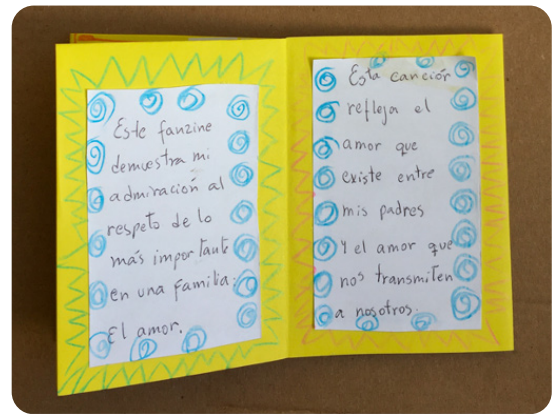 Este fanzine
demuestra mi
admiración al
respeto de lo
más importante
en una familia:
El amor.
Esta canción
refleja el
amor que
existe entre
mis padres
y el amor que
nos transmiten
a nosotros.